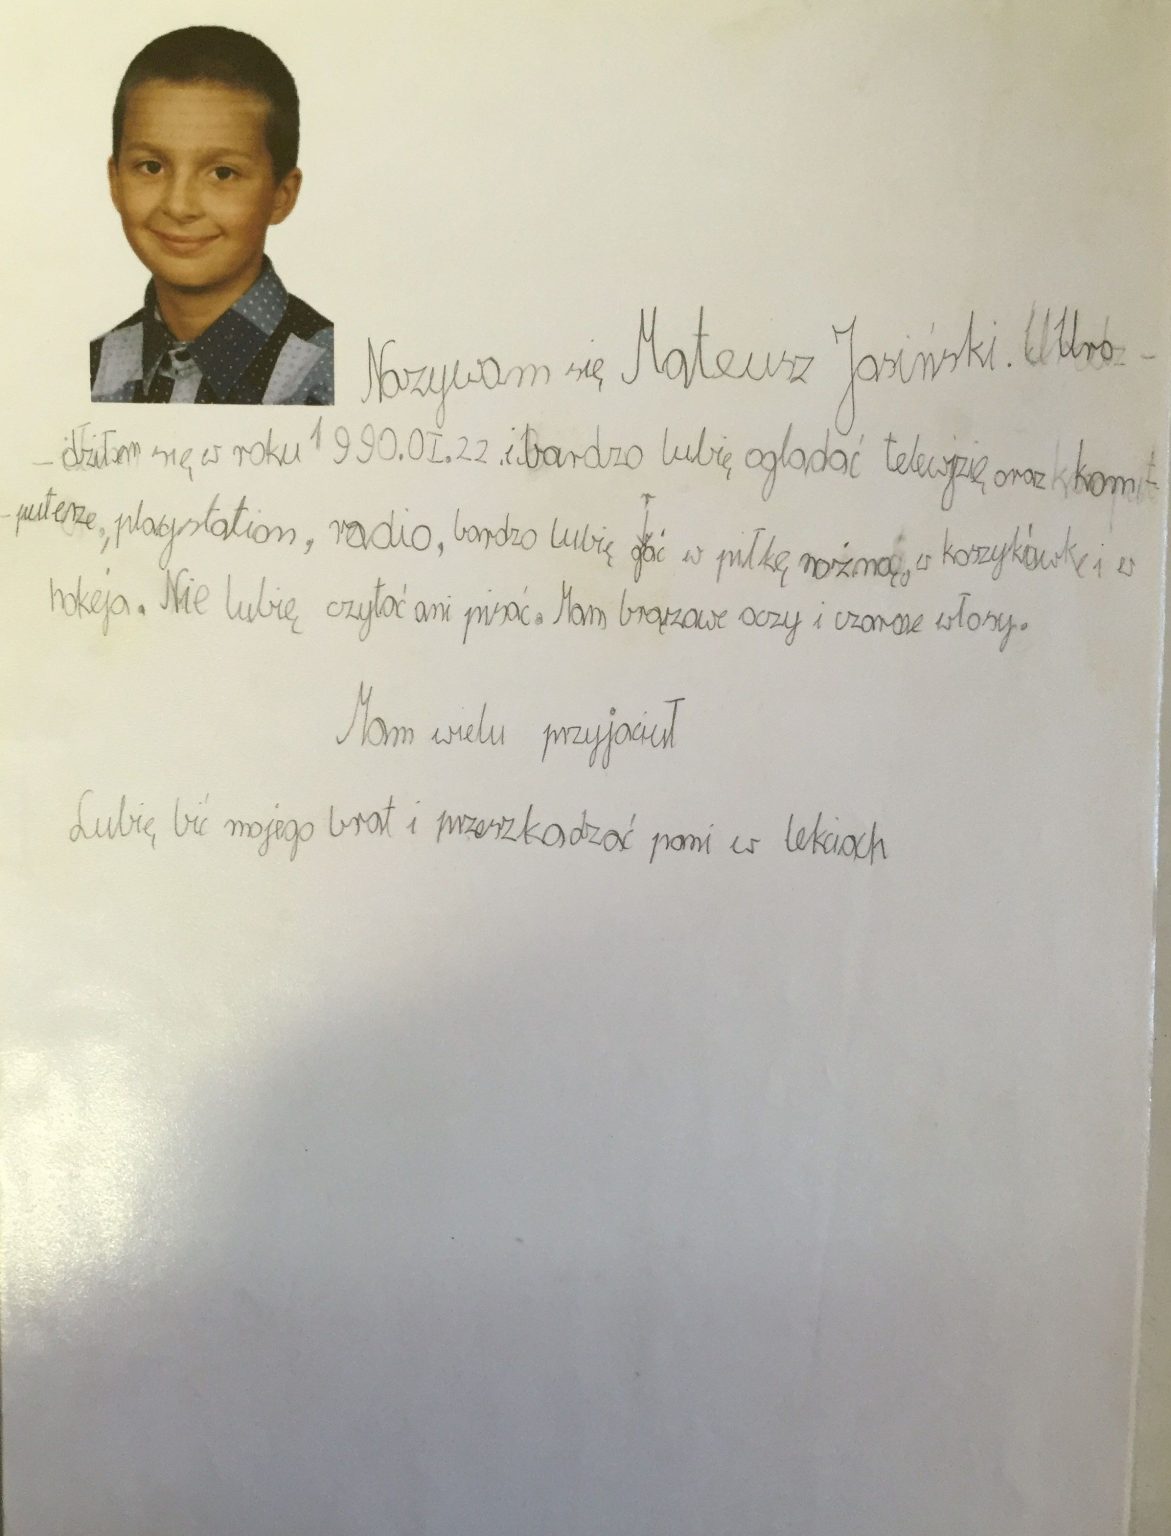 Nazywam się Mateusz Jasiński. Uro-
-dziłam się w roku 1990.01.22 i bardzo lubię ogladać telewjzię oraz kom
-puterze, playstation, radio, bardzo lubię grać w piłkę nożną, w koszykówkę i w
hokeja. Nie lubię czytać ani pisać. Mam brązawe oczy i czarne włosy.
Mam wielu przyjaciuł
Lubię bić mojego brat i przeszkadzać pani w lekciach